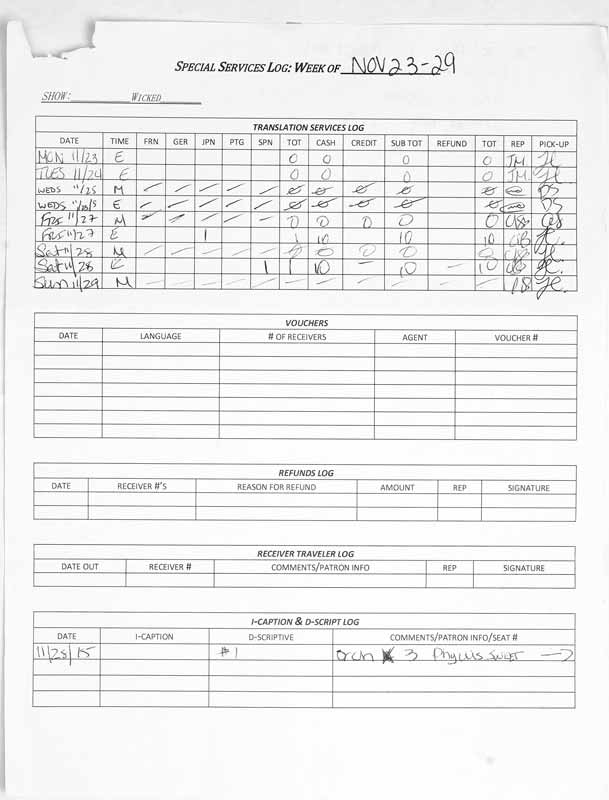 SPECIAL SERVICES LOG: WEEK OF NOV 23-29
SHOW: WICKED
TRANSLATION SERVICES LOG
DATE TIME FRN GER JPN PTG SPN TOT CASH CREDIT SUB TOT REFUND TOT REP PICK-UP
MON 11/23 E 0 0 0 0 JM
TUES 11/24 E 0 0 0 0 JM
WEDS 11/25 M - - - - - 0 0 0 0 0 DS
WEDS E - - - - - 0 0 0 0 0 DS
Fri 11/27 M - - - - - 0 0 0 0 0
Fri 11/27 E 1 1 10 10 10
Sat 11/28 M - - - - - 0 0 0 0 0
Sat 11/28 E 1 1 10 - 10 - 10
Sun 11/29 M - - - - - - - - - - -
VOUCHERS
DATE LANGUAGE # OF RECEIVERS AGENT VOUCHER #
REFUNDS LOG
DATE RECEIVER #'S REASON FOR REFUND AMOUNT REP SIGNATURE
RECEIVER TRAVELER LOG
DATE OUT RECEIVER # COMMENTS/PATRON INFO REP SIGNATURE
I-CAPTION & D-SCRIPT LOG
DATE I-CAPTION D-SCRIPTIVE COMMENTS/PATRON INFO/SEAT #
11/28/15 #1 orch 3 Phyllis →